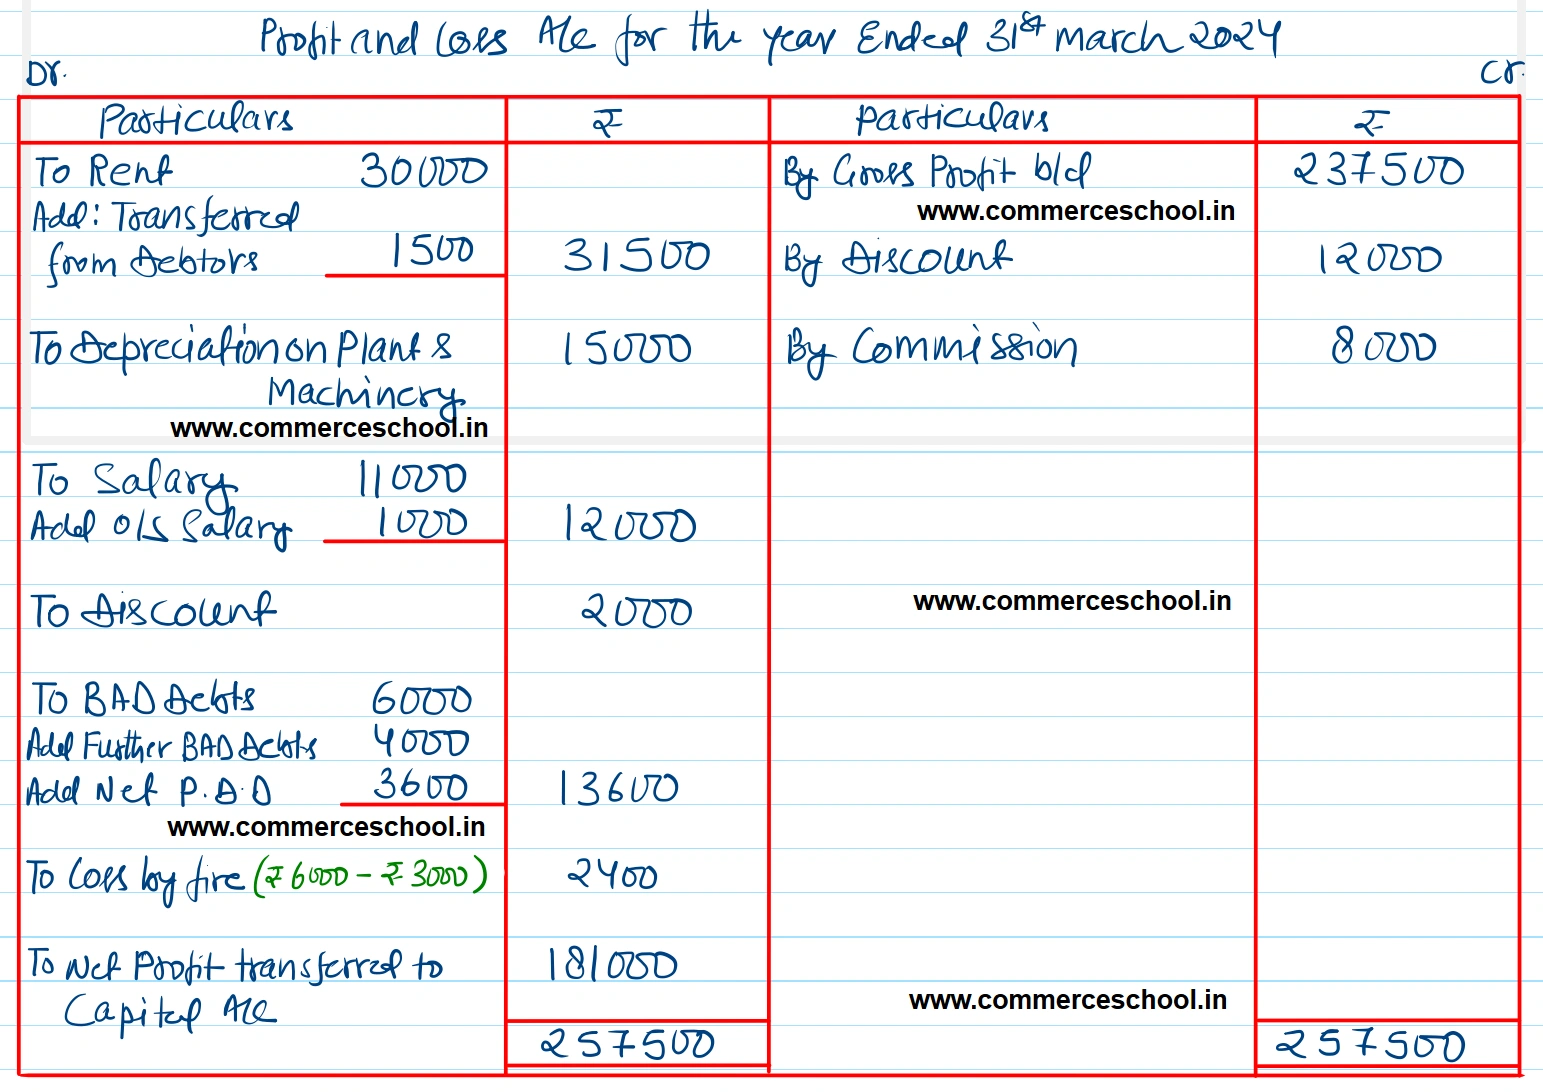 Profit and Loss A/c for the year Ended 31st March 2024
Dr. Cr.
Particulars ₹ Particulars ₹
To Rent 30000 By Gross Profit b/d 237500
Add: Transferred www.commerceschool.in
from Debtors 1500 31500 By Discount 12000
To Depreciation on Plant & 15000 By Commission 8000
Machinery
www.commerceschool.in
To Salary 11000
Add O/S Salary 1000 12000
To Discount 2000 www.commerceschool.in
To BAD Debts 6000
Add Further BAD Debts 4000
Add Net P.D.D 3600 13600
www.commerceschool.in
To Loss by fire (₹6000 - ₹3000) 2400
To Net Profit transferred to 181000
Capital A/c www.commerceschool.in
257500 257500